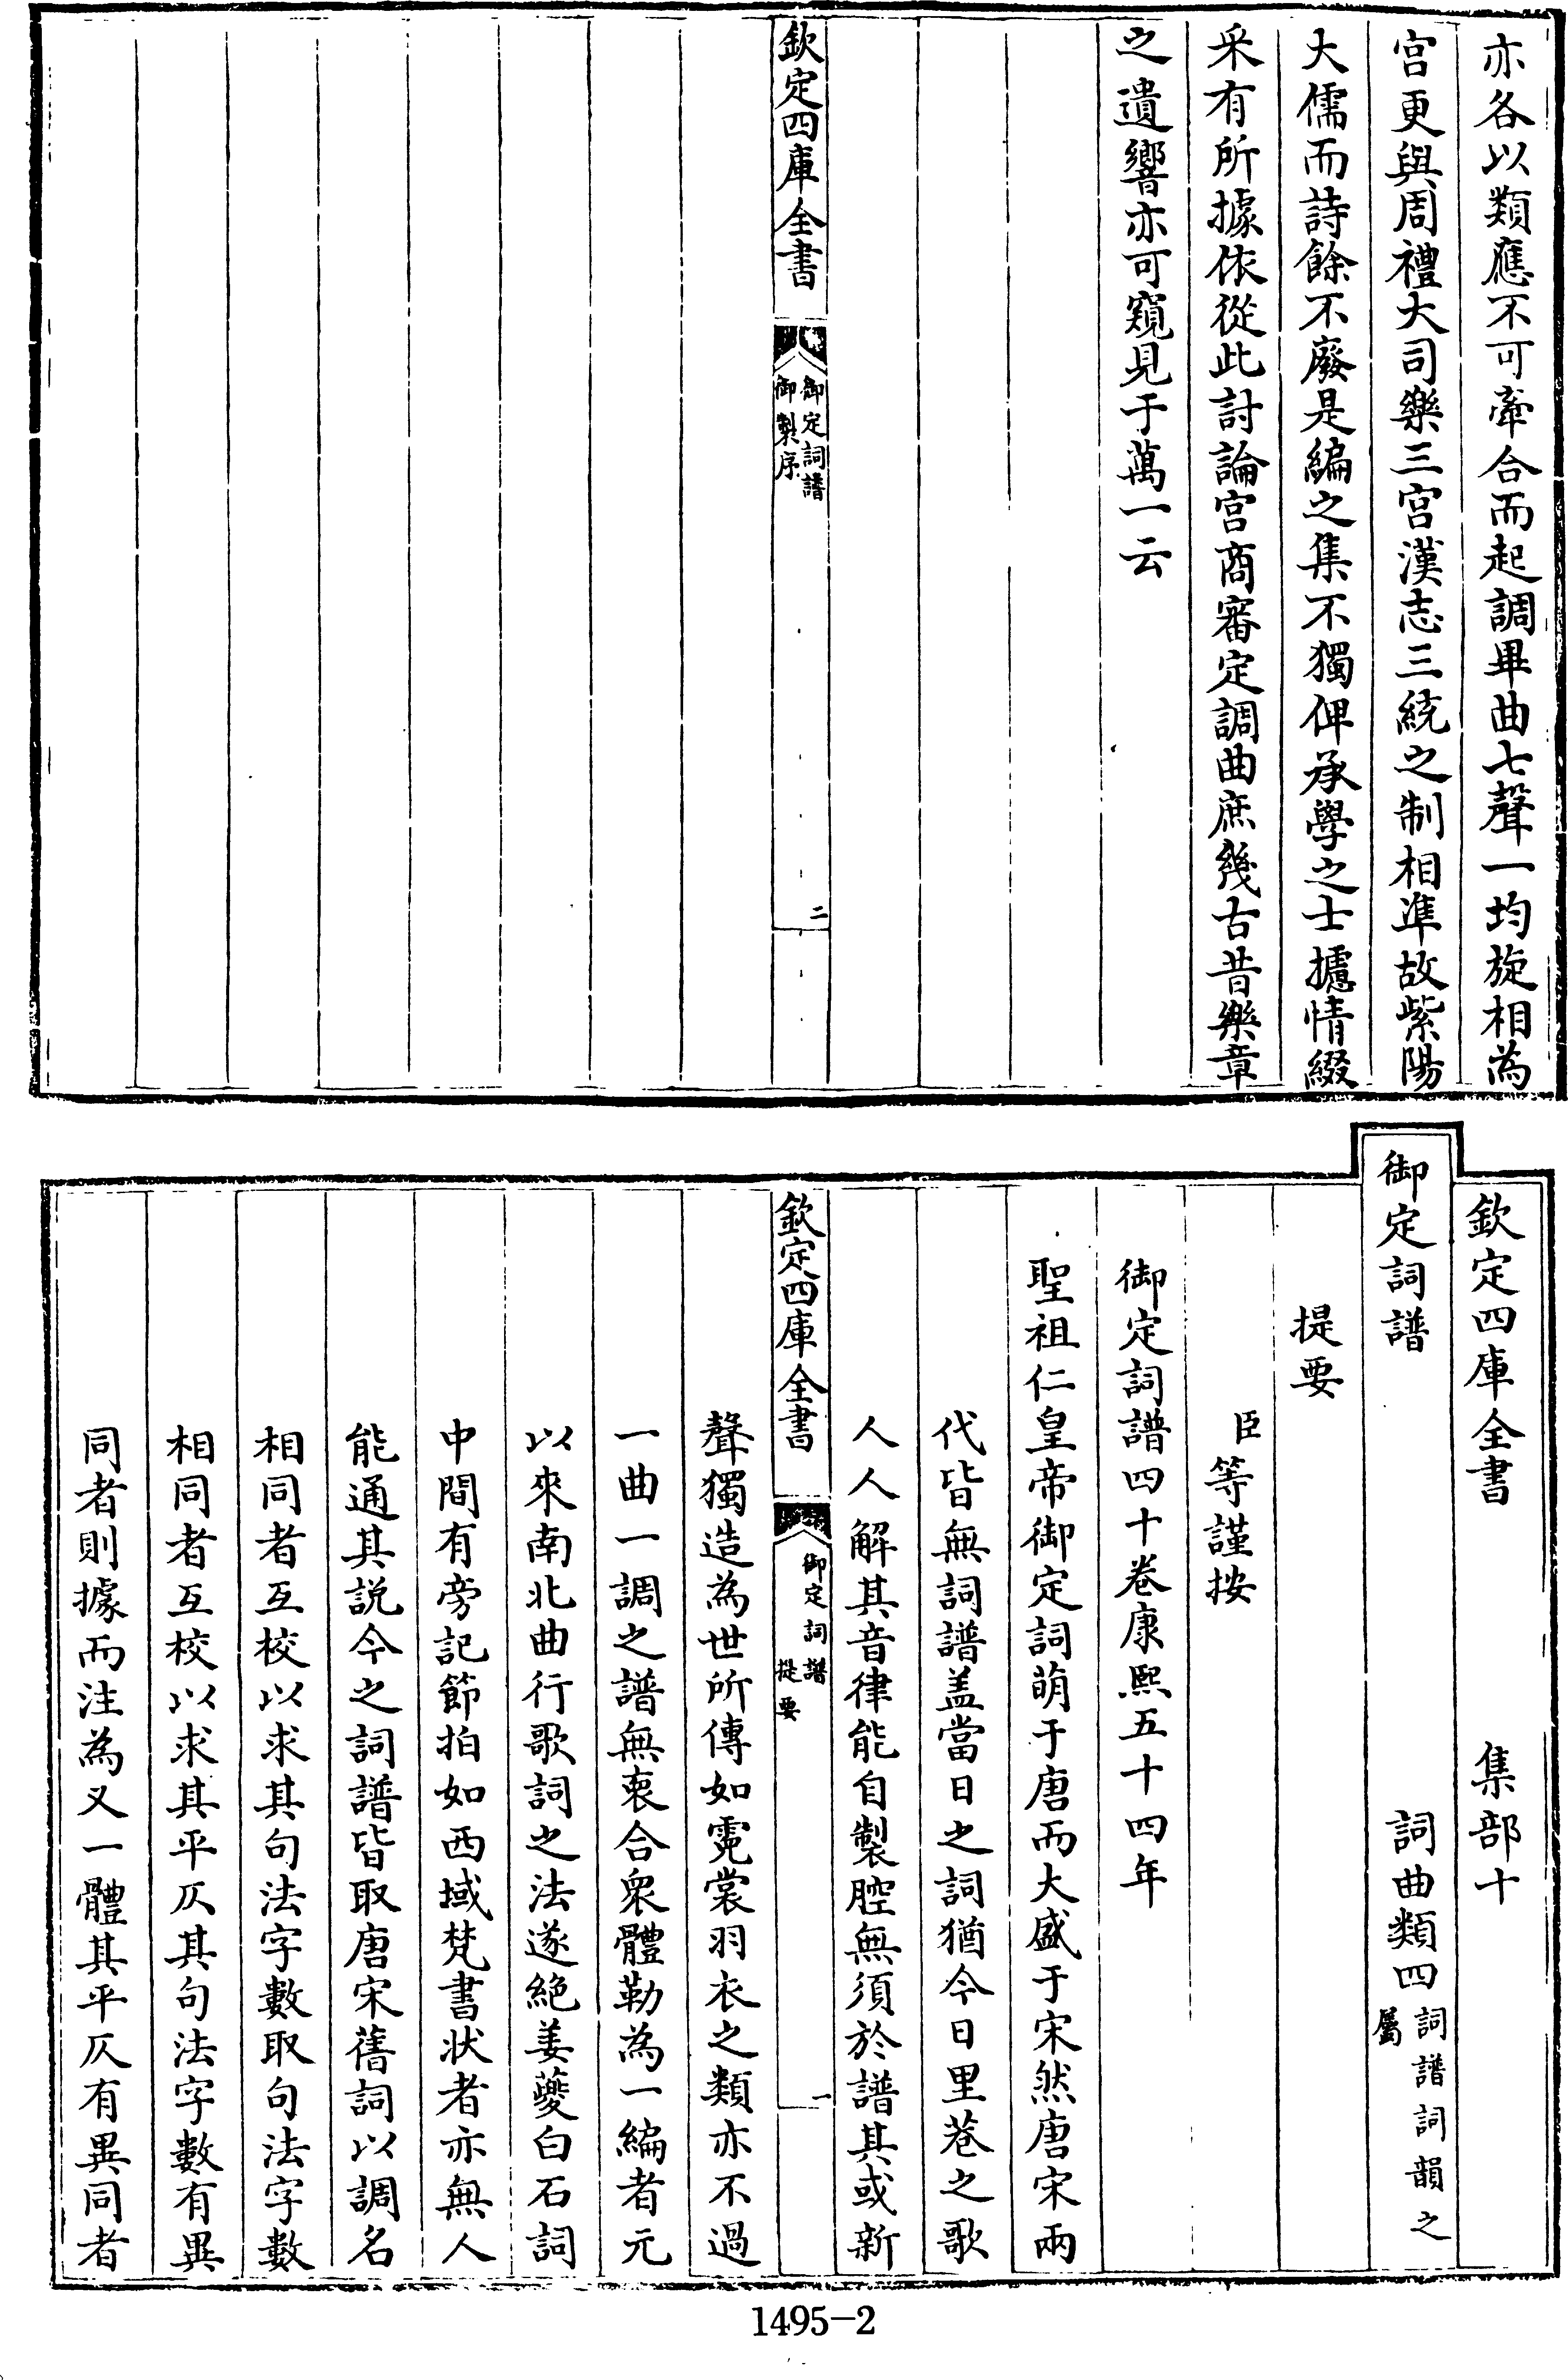 亦各以類應不可牽合而起調畢曲七聲一均旋相為
宮更與周禮大司樂三宮漢志三統之制相準故紫陽
大儒而詩餘不廢是編之集不獨俾承學之士攄情綴
采有所據依從此討論宮商審定調曲庶幾古昔樂章
之遺響亦可窺見于萬一云
欽定四庫全書
御定詞譜
御製序
二
欽定四庫全書
集部十
御定詞譜
詞曲類四
詞譜詞韻之
屬
提要
臣等謹按
御定詞譜四十卷康熙五十四年
聖祖仁皇帝御定詞萌于唐而大盛于宋然唐宋兩
代皆無詞譜盖當日之詞猶今日里巷之歌
人人解其音律能自製腔無須於譜其或新
欽定四庫全書
御定詞譜
提要
一
聲獨造為世所傳如霓裳羽衣之類亦不過
一曲一調之譜無裒合衆體勒為一編者元
以來南北曲行歌詞之法遂絶姜夔白石詞
中間有旁記節拍如西域梵書状者亦無人
能通其説今之詞譜皆取唐宋舊詞以調名
相同者互校以求其句法字數取句法字數
相同者互校以求其平仄其句法字數有異
同者則據而注為又一體其平仄有異同者
1495-2